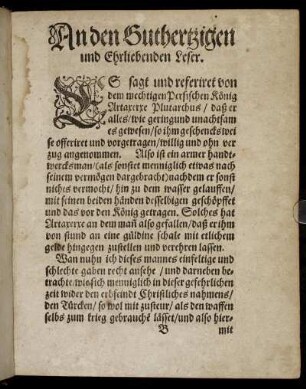 An den Guthertzigen
und Ehrliebenden Leser.
ES sagt und referiret von
dem mechtigen Persischen König
Artaxerxe Plutarchus / daß er
alles / wie gering und unachtsam
es gewesen / so ihm geschencks wei
se offeriret und vorgetragen / willig und ohn ver
zug angenommen. Also ist ein armer handt
wercksman / (als sonsten menniglich etwas nach
seinem vermögen dargebracht) nachdem er sonst
nichtes vermocht / hin zu dem wasser gelauffen /
mit seinen beiden händen desselbigen geschöpfft
und das vor den König getragen. Solches hat
Artaxerxe an dem mañ also gefallen / daß er ihm
von stund an eine güldine schale mit etlichem
gelde hingegen zustellen und verehren lassen.
Wan nuhn ich dieses mannes einfeltige und
schlechte gaben recht ansehe / und darneben be-
trachte / wie sich menniglich in dieser gefehrlichen
zeit wider den erbfeindt Christliches nahmens /
den Türcken / so wol mit zusteur / als den waffen
selbs zum krieg gebrauchẽ lässet / und also hier-
B mit